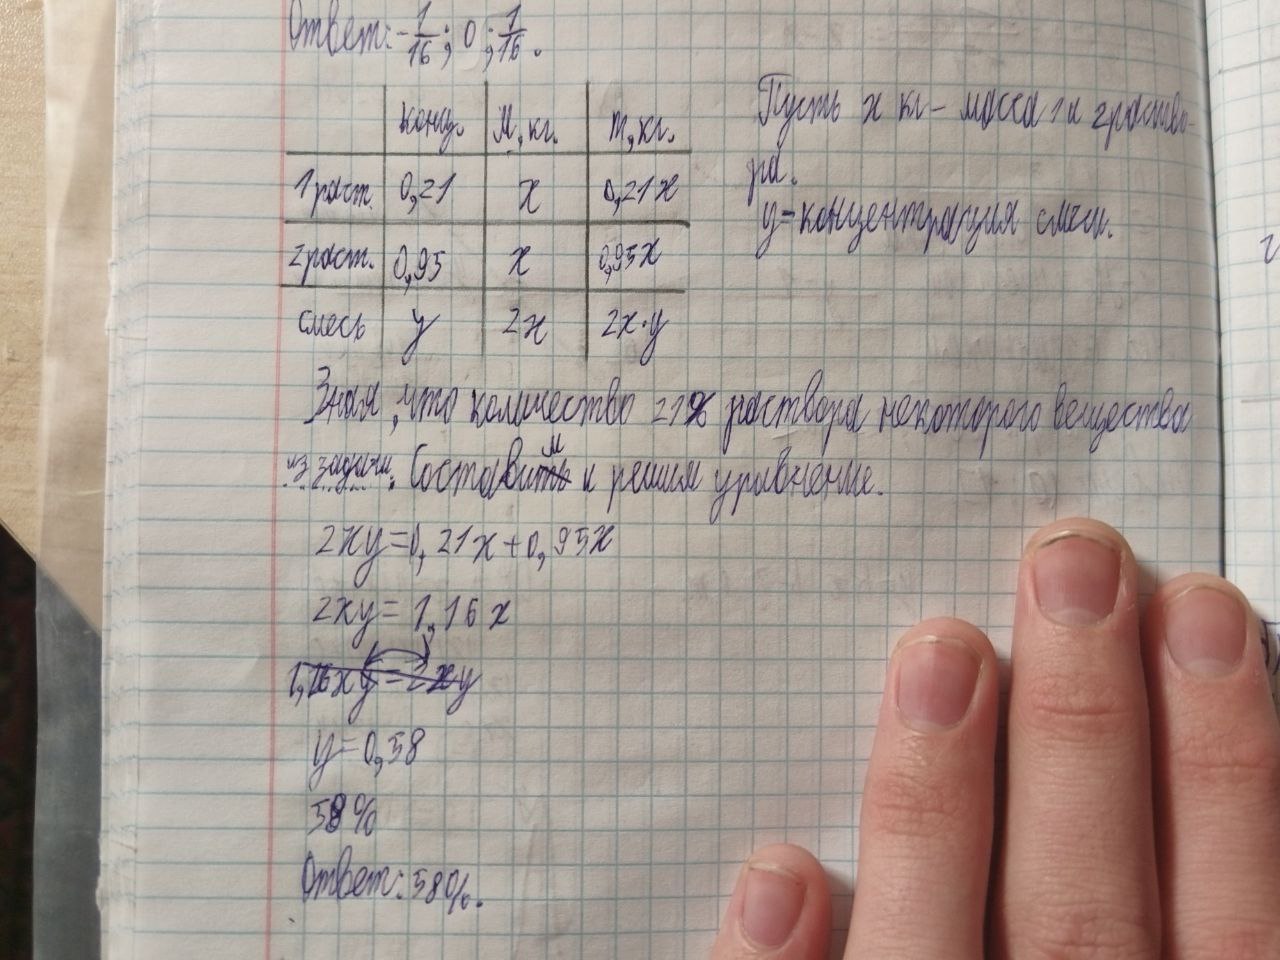 Ответ: -1/16; 0; 1/16.
конц. М, кг. m, кг.
1 раст. 0,21 x 0,21x
2 раст. 0,95 x 0,95x
смесь y 2x 2x·y
Пусть x кг – масса 1 и 2 раство-
ра.
y – концентрация смеси.
Зная, что количество 21% раствора некоторого вещества
из задачи. Составим и решим уравнение.
2xy=0,21x+0,95x
2xy=1,16x
1,16xy=2xy
y=0,58
58%
Ответ: 58%.